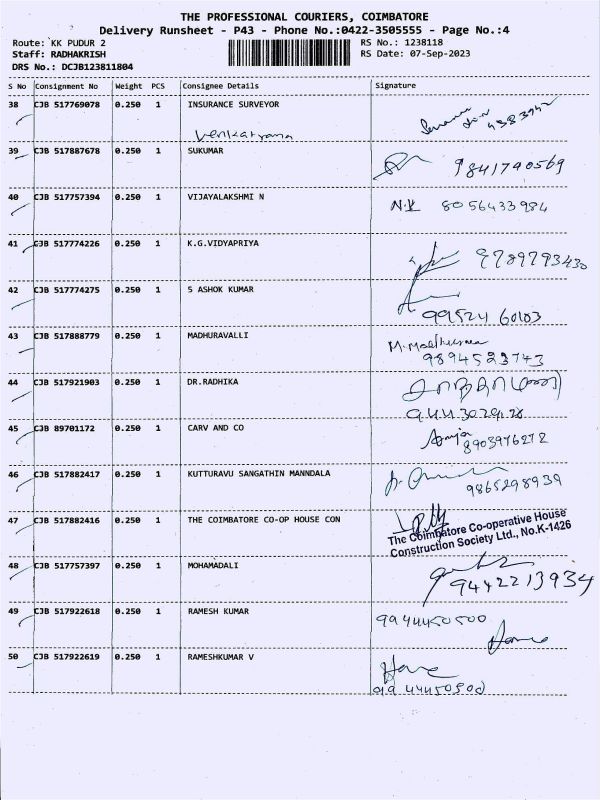 THE PROFESSIONAL COURIERS, COIMBATORE
Delivery Runsheet - P43 - Phone No.:0422-3505555 - Page No.:4
Route: KK PUDUR 2
Staff: RADHAKRISH
DRS No.: DCJB123811804
RS No.: 1238118
RS Date: 07-Sep-2023
S No Consignment No Weight PCS Consignee Details Signature
38 CJB 517769078 0.250 1 INSURANCE SURVEYOR
39 CJB 517887678 0.250 1 SUKUMAR 9841740569
40 CJB 517757394 0.250 1 VIJAYALAKSHMI N N.V 8056433984
41 CJB 517774226 0.250 1 K.G.VIDYAPRIYA 9789793430
42 CJB 517774275 0.250 1 S ASHOK KUMAR
9952460103
43 CJB 517888779 0.250 1 MADHURAVALLI
9894523743
44 CJB 517921903 0.250 1 DR.RADHIKA
45 CJB 89701172 0.250 1 CARV AND CO
8903976272
46 CJB 517882417 0.250 1 KUTTURAVU SANGATHIN MANNDALA
9865298939
47 CJB 517882416 0.250 1 THE COIMBATORE CO-OP HOUSE CON
The Coimbatore Co-operative House
Construction Society Ltd., No.K-1426
48 CJB 517757397 0.250 1 MOHAMADALI
9442213934
49 CJB 517922618 0.250 1 RAMESH KUMAR 9944450500
50 CJB 517922619 0.250 1 RAMESHKUMAR V
9944450500